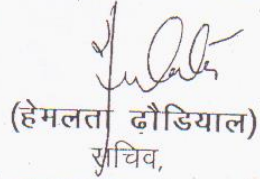 (हेमलता ढ़ौडियाल)
सचिव,